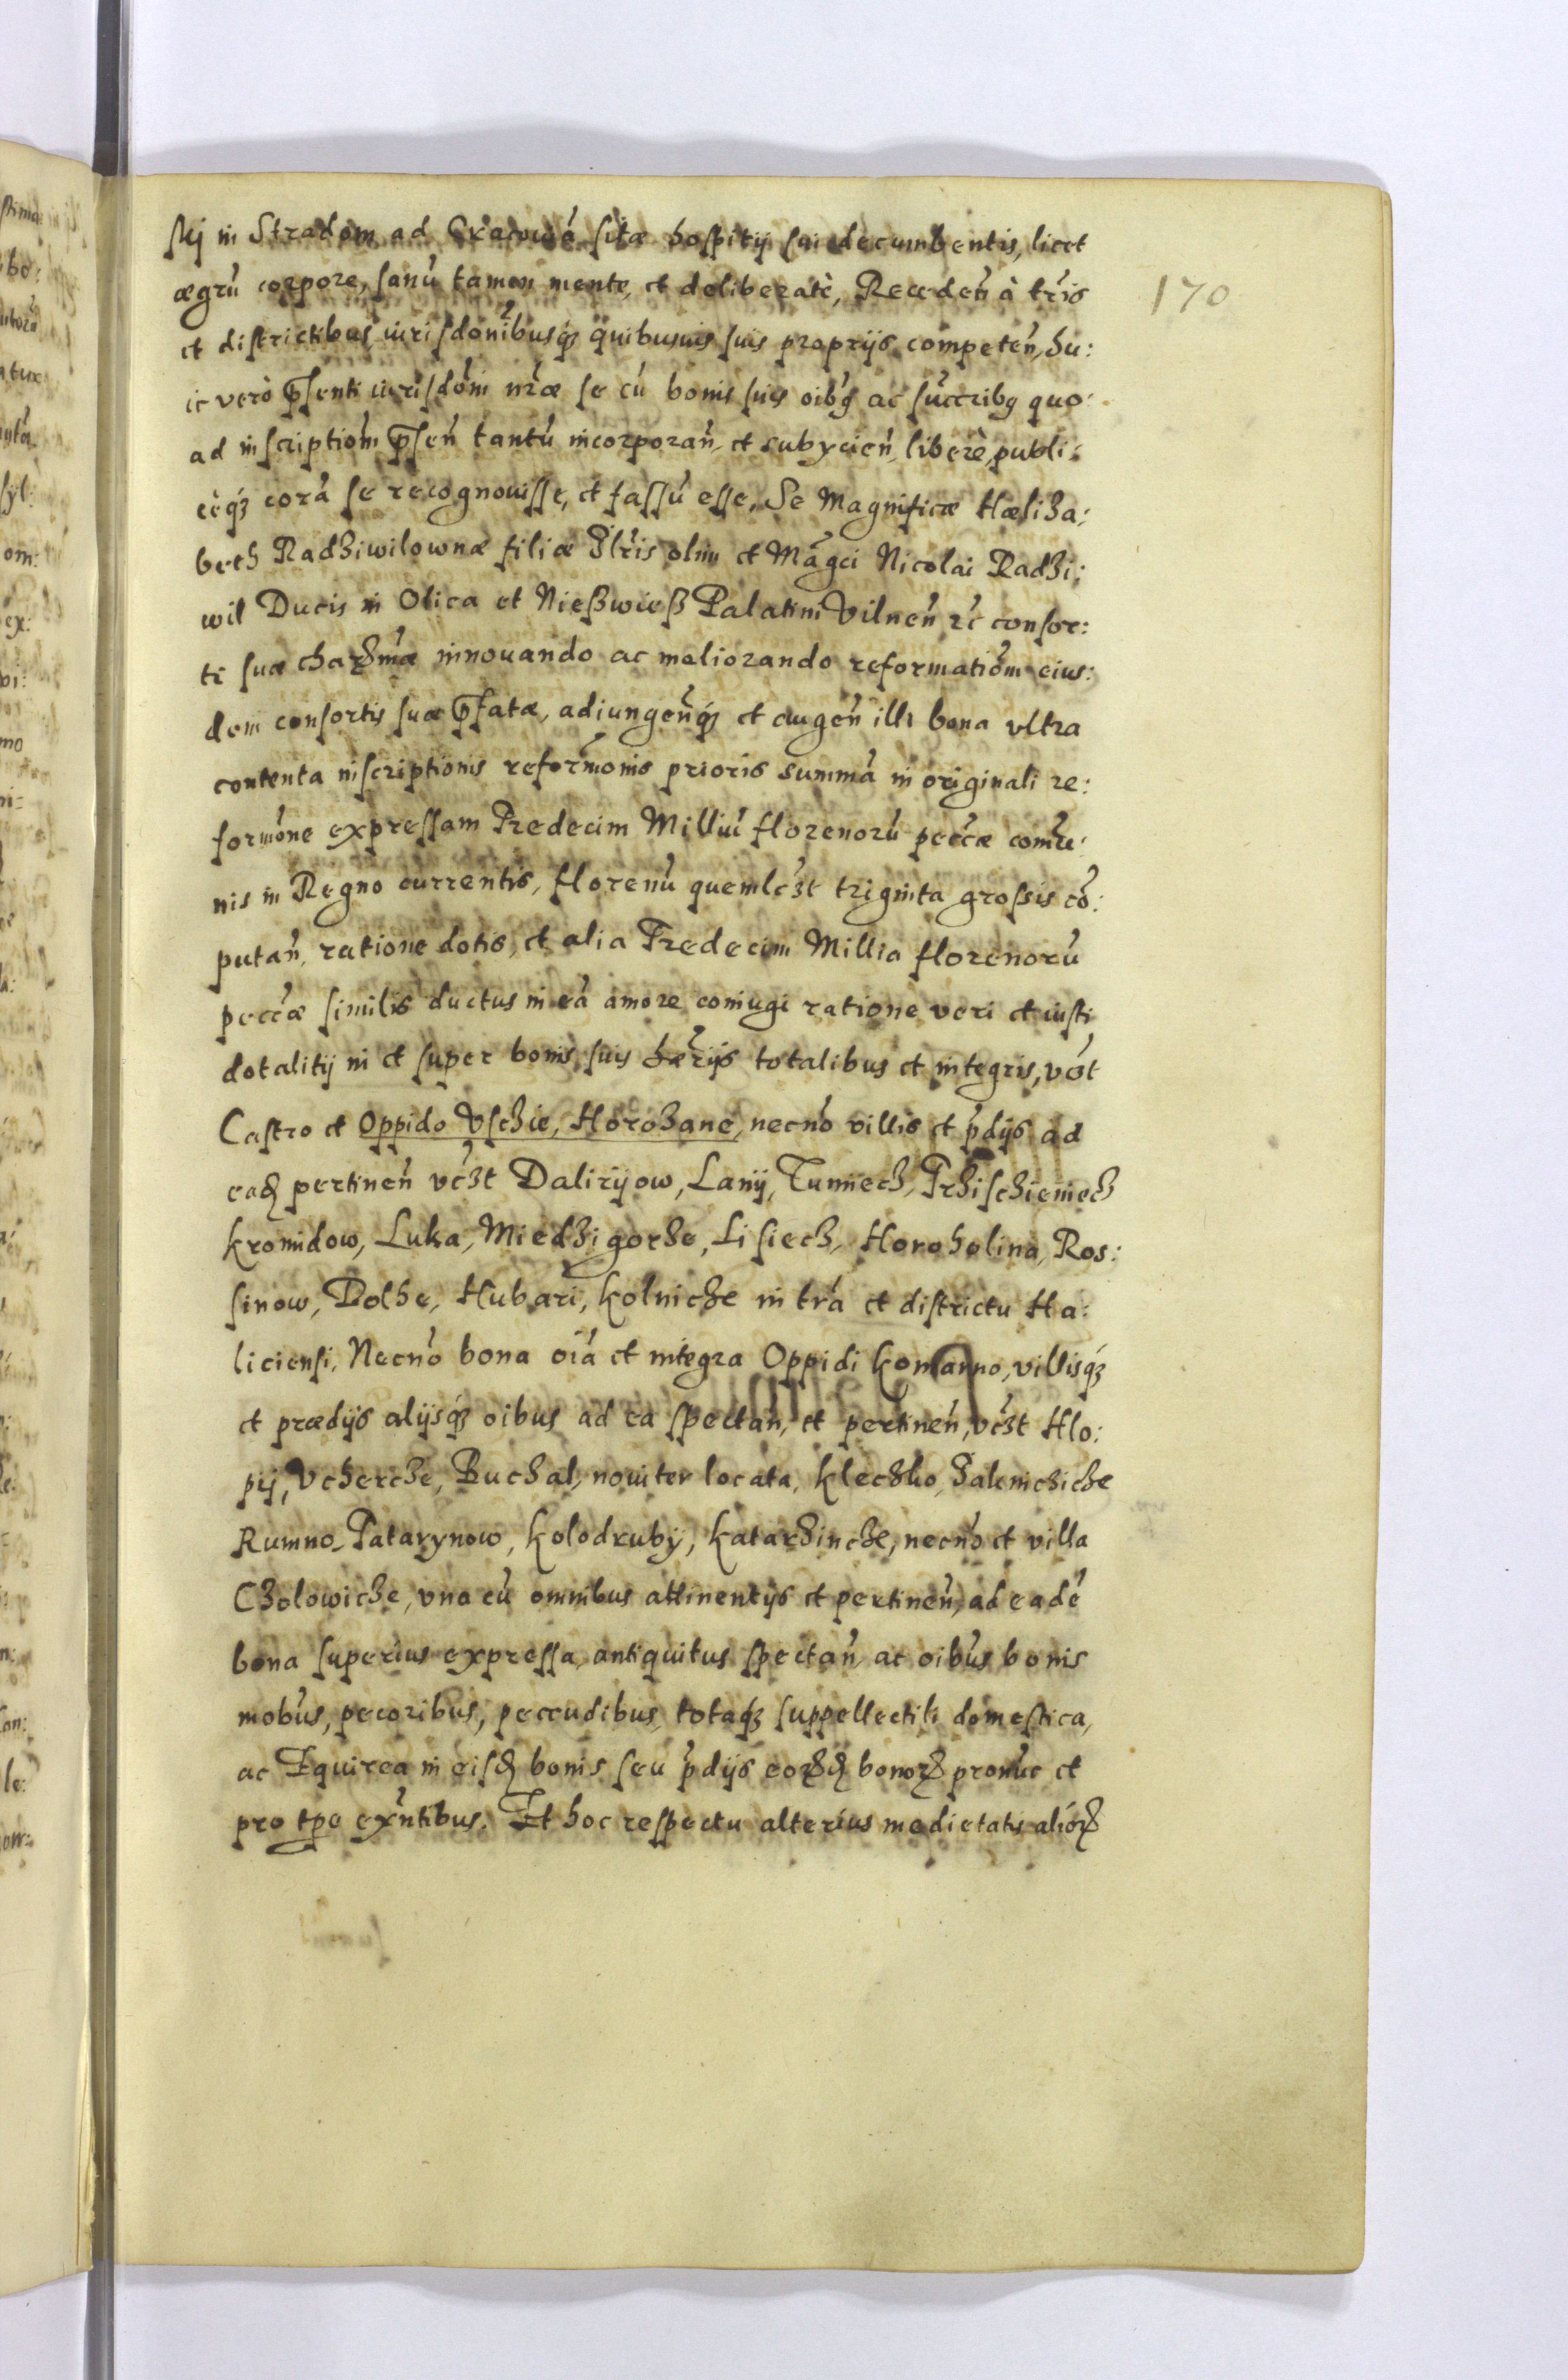 skj in Stradom ad Cracoviā sitæ hospitij sui decumbentis, licet
ægrū corpore, sanū tamen mente, et deliberatè, Recedeñ à tr̃is
170
et districtibus iurisdōnibusq́ȝ quibusuis suis proprijs competeñ, hu:
ic verò p̃senti iurisdōni nr̃æ se cū bonis suis oib9 ac succrib9 quo:
ad inscriptiōm p̃señ tantū incorporañ et subycieñ, liberè, publi:
cèq́ȝ corā se recognouisse, et fassū esse, Se Magnificæ Hæliza:
beth Radziwilownæ filiæ Ill̃ris olim et Mãgci Nicolai Radzi:
wil Ducis in Olica et Nießwieß Palatini Vilneñ ꝛc̃ consor:
ti suæ charꝫmæ innouando ac meliorando reformatiōm eius:
dem consortis suæ p̃fatæ, adiungeñq́ȝ et augeñ illi bona vltra
contenta inscriptionis reform̃onis prioris summā in originali re:
form̃one expressam Tredecim Milliū florenorū pecc̃æ comu:
nis in Regno currentis, florenū quemlꝫt triginta grossis cō:
putañ, ratione dotis, et alia Tredecim Millia florenorū
pecc̃æ similis ductus in eā amore coniugi ratione veri et iusti
dotalitij in et super bonis suis hær̃ijs totalibus et integris, vꝫt
Castro et Oppido Vschie, Horozane, necnō villis et p̃dijs ad
eadꝫ pertineñ vc̃ꝫt Dalirijow, Lanij, Tumiecz, Przischieniecz
Kromidow, Luka, Miedzigorze, Lisiecz, Horoholina, Ros:
sinow, Dolhe, Hubari, Kolnicze in tr̃a et districtu Ha:
liciensi, Necnō bona oīa et integra Oppidi Komarno, villisq́ȝ
et prædijs alijsq́ȝ oibus ad ea spectañ, et pertineñ, vc̃ꝫt Hlo:
pij, Vcherche, Buczal, nouiter locata, Kleczko, Jakinchicze
Rumno, Tatarynow, Kolodruby, Katarzincze, necnō et villa
Cholowicze, vna cū omnibus attinentijs et pertineñ, ad eadē
bona superius expressa, antiquitus spectañ, ac oibus bonis
mobus, pecoribus, peccudibus, totaq́ȝ suppellectili domestica,
ac Equirea in eisdꝫ bonis seu p̃dijs eorꝫdꝫ bonorꝫ pronūc et
pro tpe exñtibus. Et hoc respectu alterius medietatis aliorꝫ